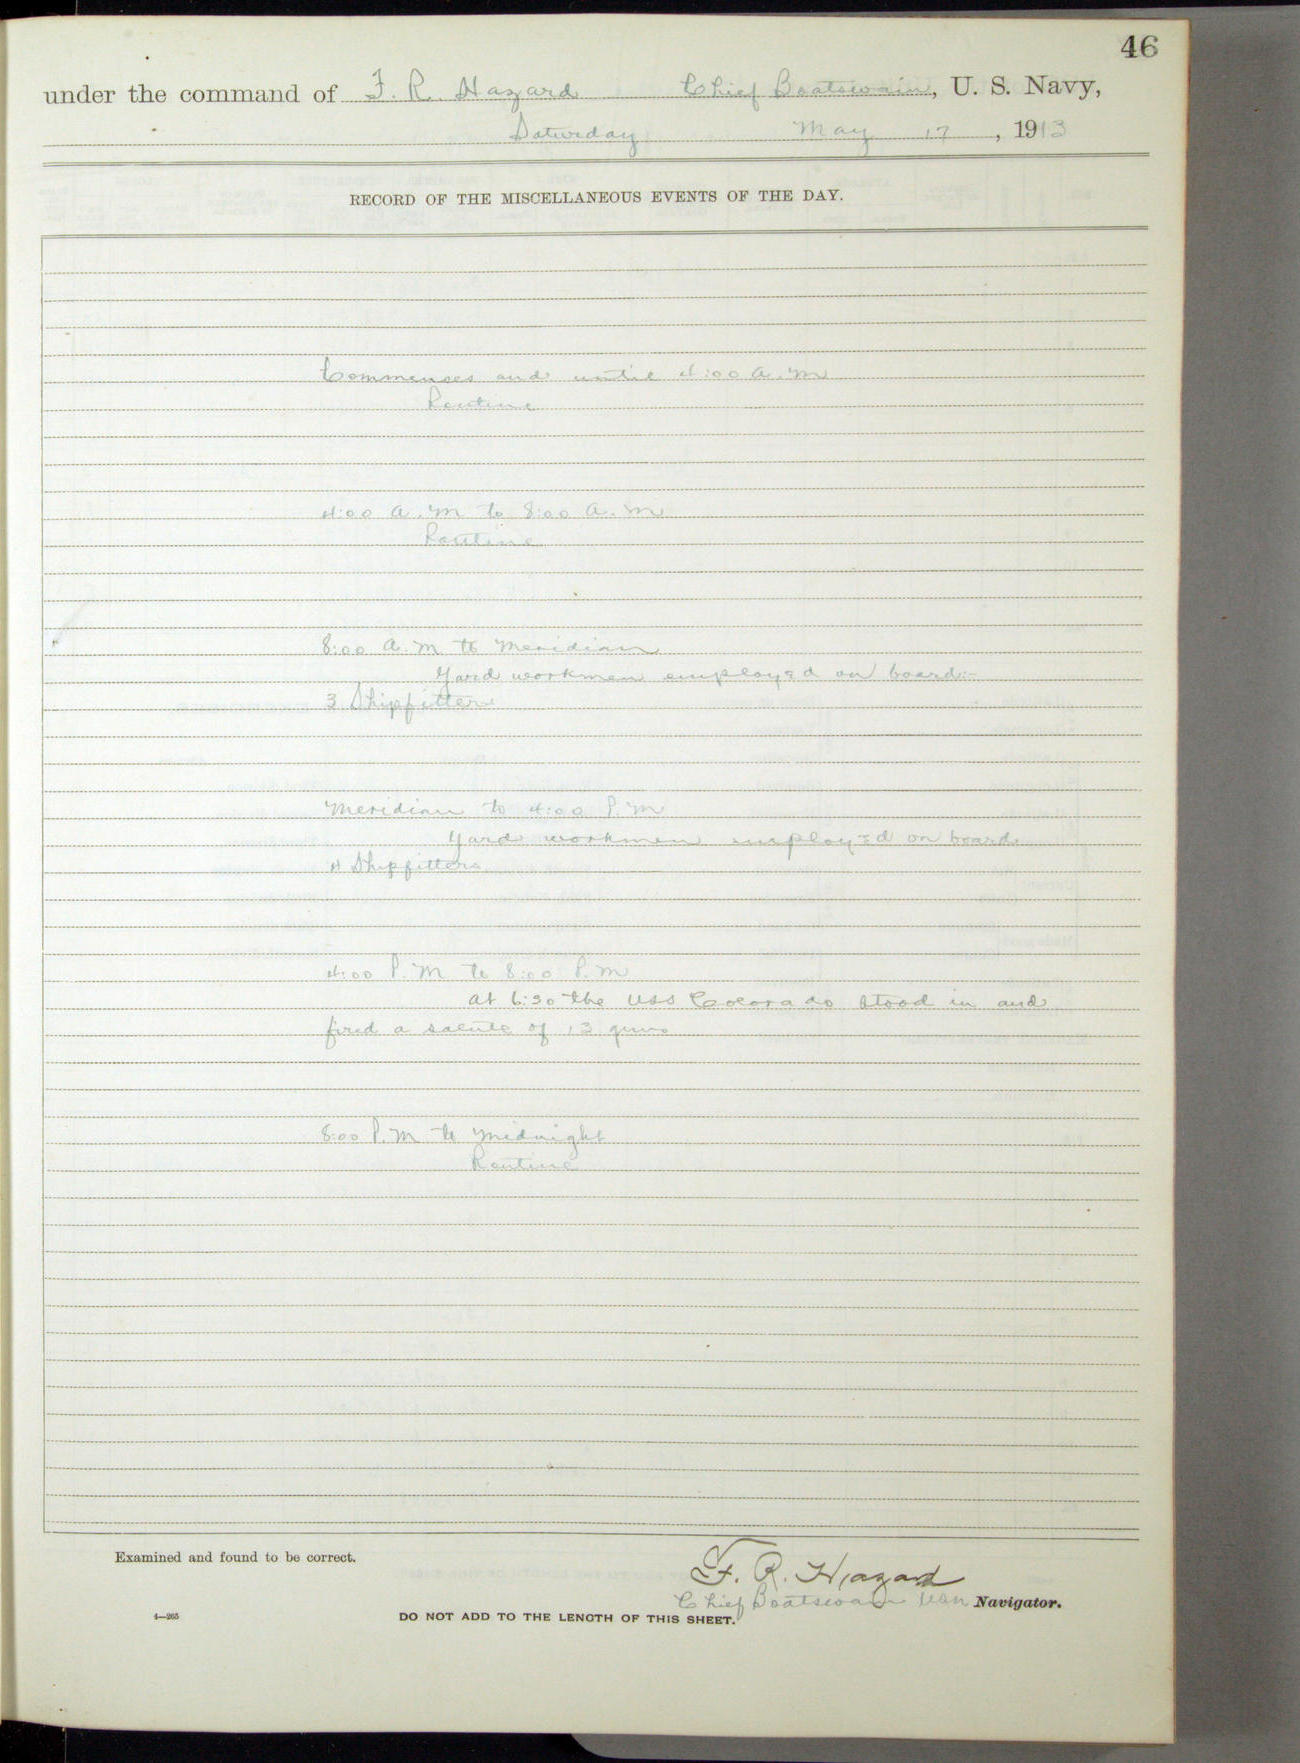 46
under the command of F. R. Hazard Chief Boatswain, U. S. Navy,
Saturday May 17, 1913
RECORD OF THE MISCELLANEOUS EVENTS OF THE DAY.
Commenses and until 4:00 A.M
Routine
4:00 A.M to 8:00 A.M
Routine
8:00 A.M to Meridian
Yard workmen employed on board:-
3 Shipfitters
Meridian to 4:00 P.M
Yard workmen employed on board
4 Shipfitters
4:00 P.M to 8:00 P.M
At 6:30 the USS Colorado stood in and
fired a salute of 13 guns
8:00 P.M to Midnight
Routine
Examined and found to be correct.
F. R. Hazard
Chief Boatswain USN Navigator.
4—265
DO NOT ADD TO THE LENGTH OF THIS SHEET.